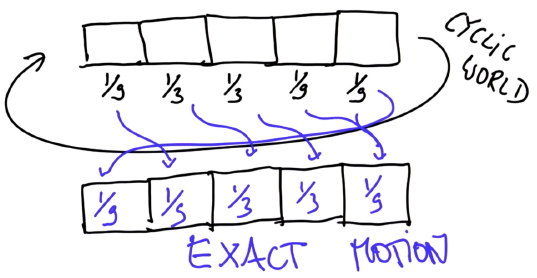 CYCLIC
WORLD
1/9 1/3 1/3 1/9 1/9
1/9 1/9 1/3 1/3 1/9
EXACT MOTION